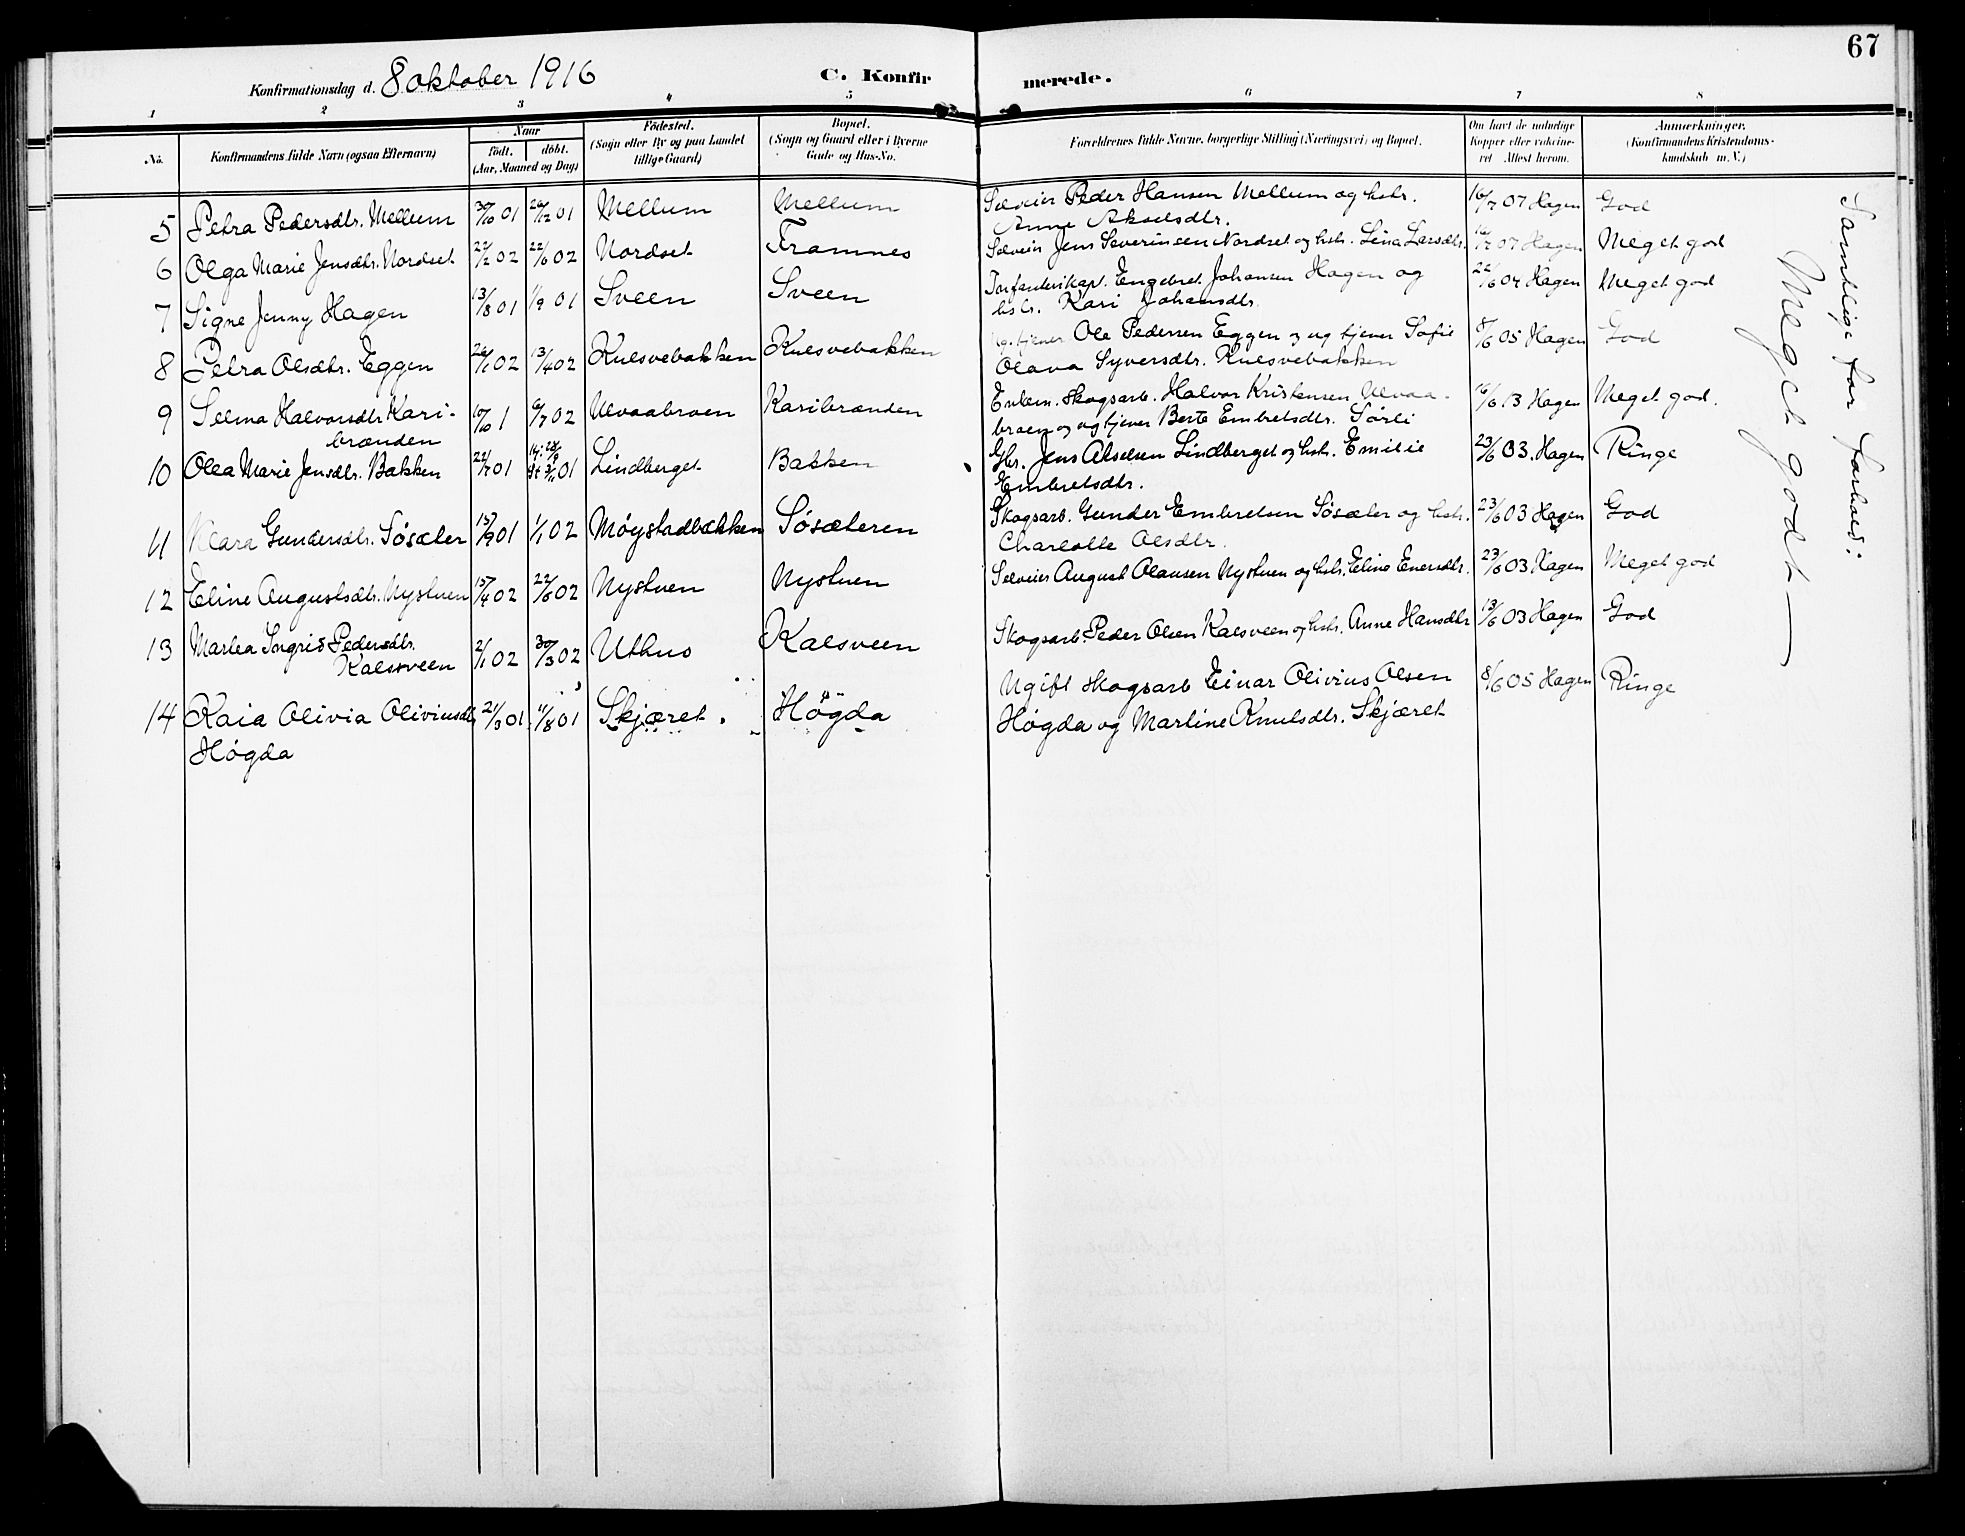 67
Konfirmationsdag d. 8 oktober 1916
C. Konfirmerede.
1 2 3 4 5 6 7 8
No.
Konfirmandens fulde Navn (ogsaa Efternavn)
Naar
født. døbt.
(Aar, Maaned og Dag)
Fødested.
(Sogn eller By og paa Landet
tillige Gaard)
Bopæl.
(Sogn og Gaard eller i Byerne
Gade og Hus-No.
Forældrenes fulde Navne, borgerlige Stilling (Næringsvei) og Bopæl.
Om havt de naturlige
Kopper eller vakcine-
ret Attest herom.
Anmærkninger.
(Konfirmandens Kristendoms-
kundskab m. V.)
5 Petra Pedersdtr. Mellum 30/10 01 26/12 01 Mellum Mellum Selveier Peder Hansen Mellum og hstr. 16/7 07 Hagen God
Anne Akselsdtr.
6 Olga Marie Jensdtr. Nordset 22/2 02 22/6 02 Nordset Framnes Selveier Jens Severinsen Nordset og hstr. Lina Larsdtr. 16/7 07 Hagen Meget god
7 Signe Jenny Hagen 13/8 01 1/9 01 Sveen Sveen Infanterikapt. Engebret Johansen Hagen og 22/6 04 Hagen Meget god
hstr. Kari Johansdtr.
8 Petra Olsdtr. Eggen 26/1 02 13/4 02 Kulsvebakken Kulsvebakken Ug. tjener Ole Pedersen Eggen og ug tjener Sofie 8/6 05 Hagen God
Olava Syversdtr. Kulsvebakken
9 Selma Halvorsdtr. Kari- 10/10 1 6/7 02 Ulvaabroen Karibrænden Enkem. Skogsarb. Halvor Kristensen Ulvaa- 16/6 13 Hagen Meget god.
brænden
broen og ug tjener Berte Embretsdtr. Sørli
10 Olea Marie Jensdtr. Bakken 22/7 01 01 Lindberget Bakken Gbr. Jens Olsen Lindberget og hstr. Emilie 23/6 03. Hagen Ringe
Embretsdtr.
11 Klara Gundersdtr. Søsæter 15/9 01 1/1 02 Møystadbækken Søsæteren Skogsarb. Gunder Embretsen Søsæter og hstr. 23/6 03 Hagen God
Charlotte Olsdtr.
12 Eline Augustsdtr. Nystuen 15/4 02 22/6 02 Nystuen Nystuen Selveier August Olausen Nystuen og hstr. Eline Enersdtr. 23/6 03 Hagen Meget god
13 Martea Ingrid Pedersdtr. 2/1 02 30/3 02 Uthus Kalsveen Skogsarb. Peder Olsen Kalsveen og hstr. Anne Hansdtr 13/6 03 Hagen God
Kalsveen
14 Kaia Olivia Oliviusdtr. 21/3 01 11/8 01 Skjæret. Høgda Ugift skogsarb Einar Olivius Olsen 8/6 05 Hagen Ringe
Høgda
Høgda og Martine Knutsdtr. Skjæret
Samtlige har forhold:
Meget godt —